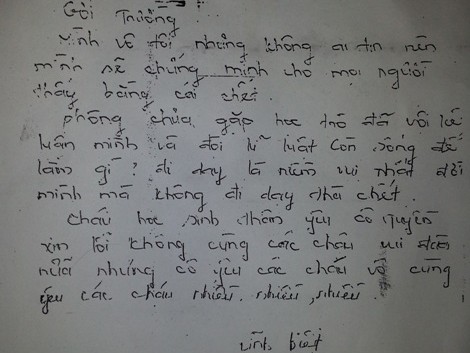 Gởi Trường
mình vô tội nhưng không ai tin nên
mình sẽ chứng minh cho mọi người
thấy bằng cái chết.
phòng chưa gặp học trò đã vội kế
luận mình và đội kỉ luật còn sống để
làm gì? đi dạy là niềm vui nhất đời
mình mà không đi dạy thà chết.
cháu học sinh thân yêu cô
xin lỗi không cùng các cháu vui đùa
nữa nhưng cô yêu các cháu vô cùng
yêu các cháu nhiều. nhiều, nhiều.
vĩnh biệt